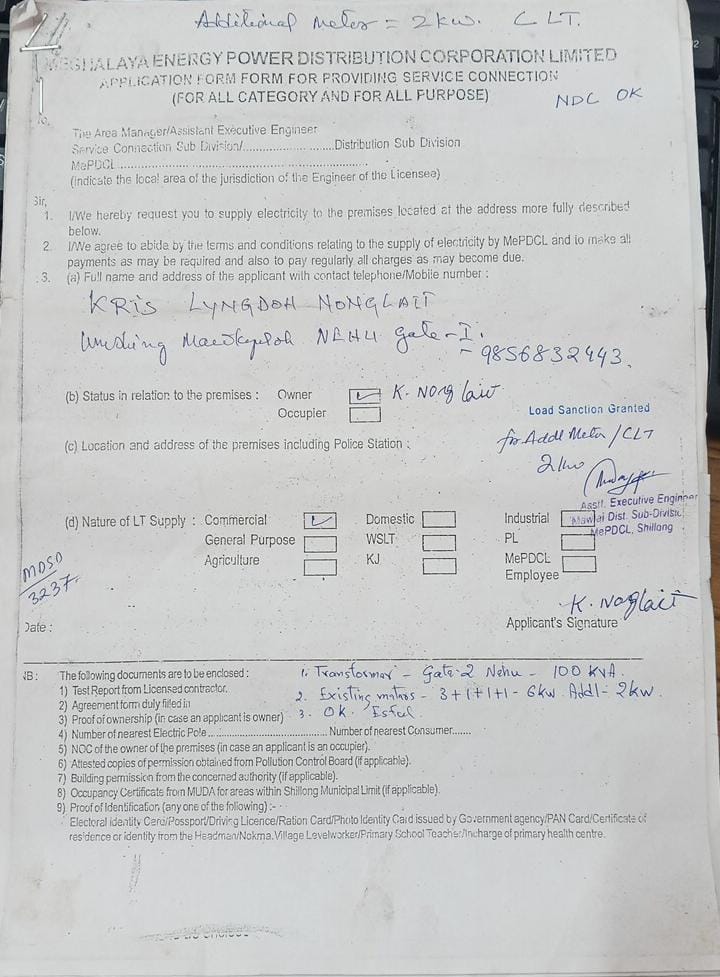 Additional meter = 2 kw. CLT.
MEGHALAYA ENERGY POWER DISTRIBUTION CORPORATION LIMITED
APPLICATION FORM FORM FOR PROVIDING SERVICE CONNECTION
(FOR ALL CATEGORY AND FOR ALL PURPOSE)
NDC OK
To,
The Area Manager/Assistant Executive Engineer
Service Connection Sub Division/........................Distribution Sub Division
MePDCL................................................................
(Indicate the local area of the jurisdiction of the Engineer of the Licensee)
Sir,
1. I/We hereby request you to supply electricity to the premises located at the address more fully described
below.
2. I/We agree to abide by the terms and conditions relating to the supply of electricity by MePDCL and to make all
payments as may be required and also to pay regularly all charges as may become due.
3. (a) Full name and address of the applicant with contact telephone/Mobile number :
KRIS LYNGDOH NONGLAIT
NEHU Gate-I.
- 9856832443.
(b) Status in relation to the premises : Owner ✓ K. Nonglait
Occupier
Load Sanction Granted
(c) Location and address of the premises including Police Station :
for Addl Meter/CLT
2 kw
Asstt. Executive Engineer
Mawlai Dist. Sub-Divisio
MePDCL, Shillong
(d) Nature of LT Supply : Commercial ✓ Domestic Industrial
General Purpose WSLT PL
Agriculture KJ MePDCL
Employee
MDSD
3237.
K. Nonglait
Date :
Applicant's Signature
NB : The following documents are to be enclosed :
1. Transformer - Gate-2 Nehu - 100 KVA.
1) Test Report from Licensed contractor.
2. Existing - 3+1+1+1 - 6kw. Addl - 2kw.
2) Agreement form duly filled in
3) Proof of ownership (in case an applicant is owner) 3. OK.
4) Number of nearest Electric Pole........................................Number of nearest Consumer.......
5) NOC of the owner of the premises (in case an applicant is an occupier).
6) Attested copies of permission obtained from Pollution Control Board (if applicable).
7) Building permission from the concerned authority (if applicable).
8) Occupancy Certificate from MUDA for areas within Shillong Municipal Limit (if applicable).
9) Proof of Identification (any one of the following) :-
Electoral Identity Card/Passport/Driving Licence/Ration Card/Photo Identity Card issued by Government agency/PAN Card/Certificate of
residence or identity from the Headman/Nokma.Village Levelworker/Primary School Teacher/Incharge of primary health centre.